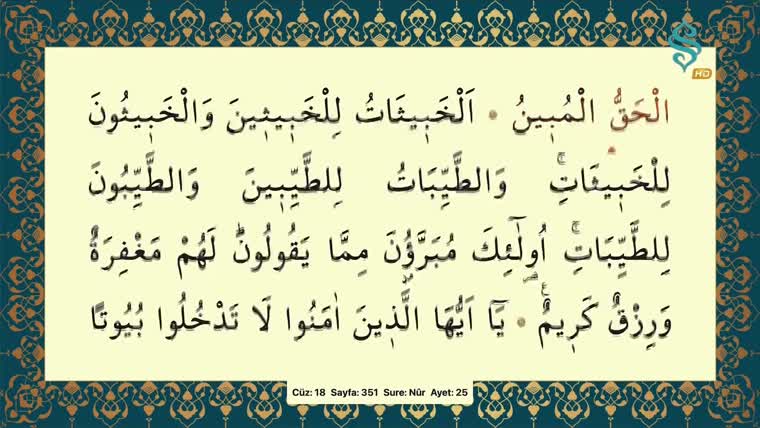 HD
الْحَقُّ الْمُب۪ينُ • اَلْخَب۪يثَاتُ لِلْخَب۪يث۪ينَ وَالْخَب۪يثُونَ
لِلْخَب۪يثَاتِۚ وَالطَّيِّبَاتُ لِلطَّيِّب۪ينَ وَالطَّيِّبُونَ
لِلطَّيِّبَاتِۚ اُو۬لٰٓئِكَ مُبَرَّؤُ۫نَ مِمَّا يَقُولُونَۜ لَهُمْ مَغْفِرَةٌ
وَرِزْقٌ كَر۪يمٌ۟ • يَٓا اَيُّهَا الَّذ۪ينَ اٰمَنُوا لَا تَدْخُلُوا بُيُوتًا
Cüz: 18 Sayfa: 351 Sure: Nûr Ayet: 25